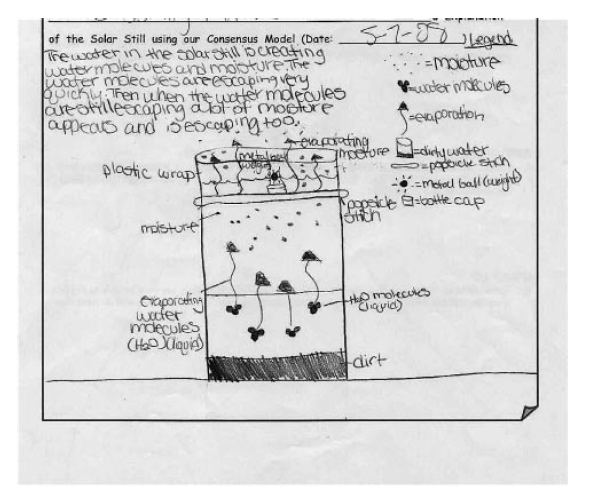 Explanation
of the Solar Still using our Consensus Model (Date: 5-7-08 ) Legend
The water in the solar still is creating
water molecules and moisture. The
water molecules are escaping very
quickly. Then when the water molecules
are still escaping a lot of moisture
appears and is escaping too.
= moisture
= water molecules
= evaporation
= dirty water
= popsicle stich
= metal ball (weight)
= bottle cap
evaporating
moisture
metal
plastic wrap
popsicle
stich
moisture
evaporating
water
molecules
(H2O)(liquid)
H2O molecules
(liquid)
dirt